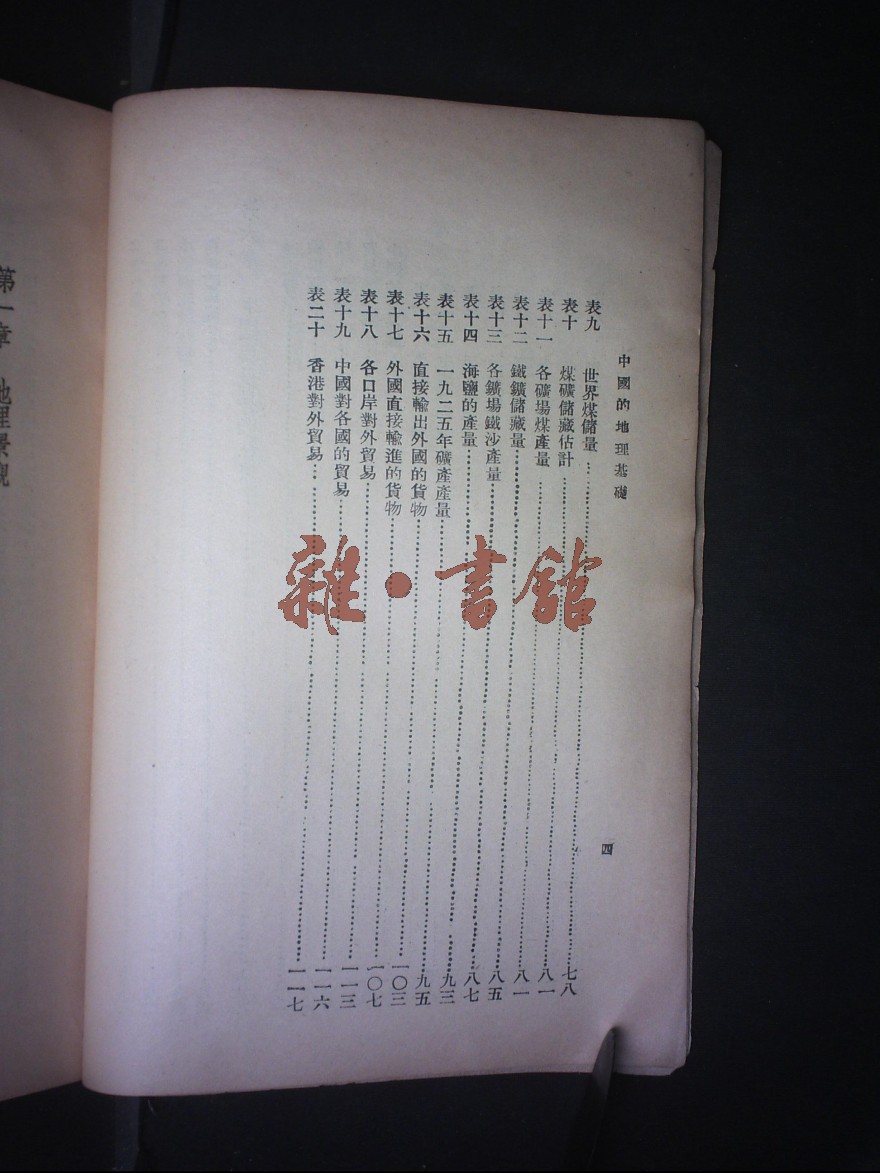 中國的地理基礎 四
表九 世界煤儲量……七八
表十 煤礦儲藏估計……八一
表十一 各礦場煤產量……八一
表十二 鐵鑛儲藏量……八五
表十三 各鑛場鐵沙產量……八七
表十四 海鹽的產量……九三
表十五 一九二五年礦產產量……九五
表十六 直接輸出外國的貨物……一〇三
表十七 外國直接輸進的貨物……一〇七
表十八 各口岸對外貿易……一一三
表十九 中國對各國的貿易……一一六
表二十 香港對外貿易……一一七
第一章 地理景觀
雜·書館